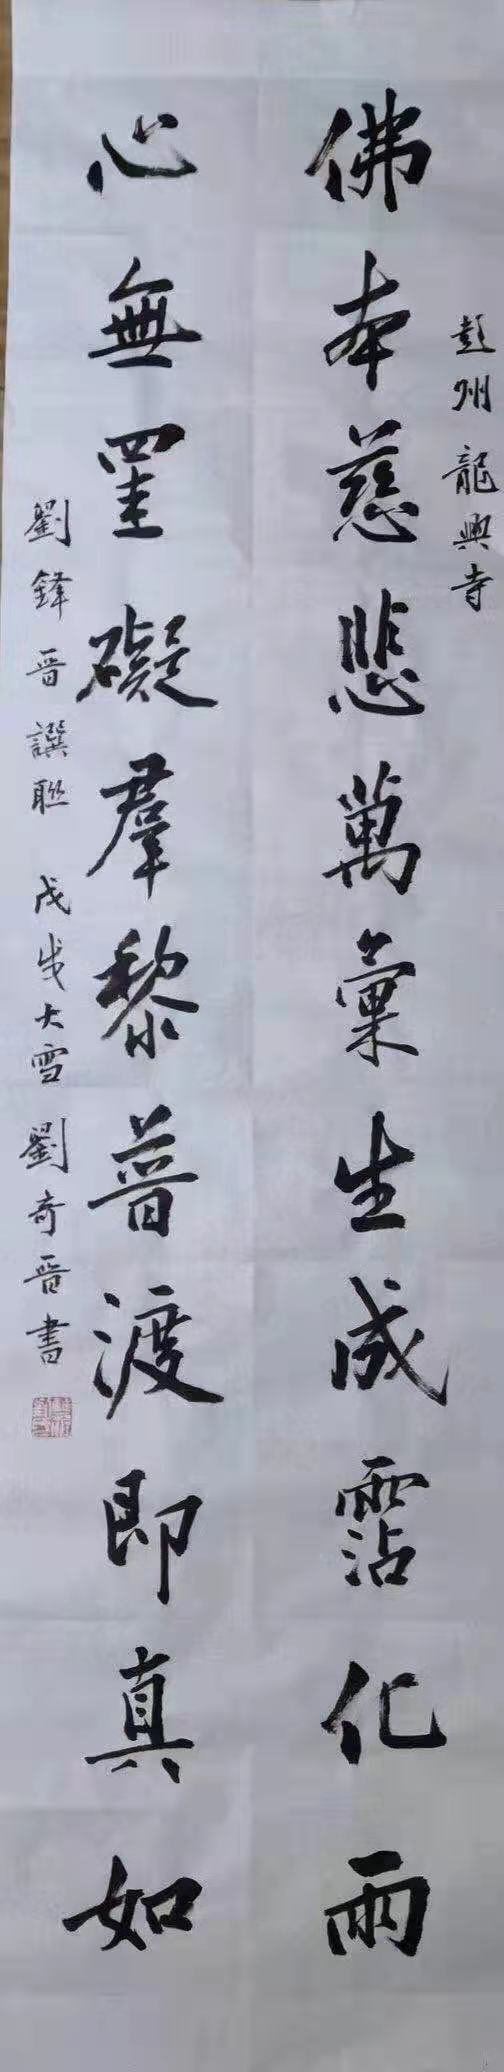 彭州龍興寺
佛本慈悲萬彙生成霑化雨
心無罣礙羣黎普渡即真如
劉鋒晉譔聯 戊戌大雪 劉奇晉書